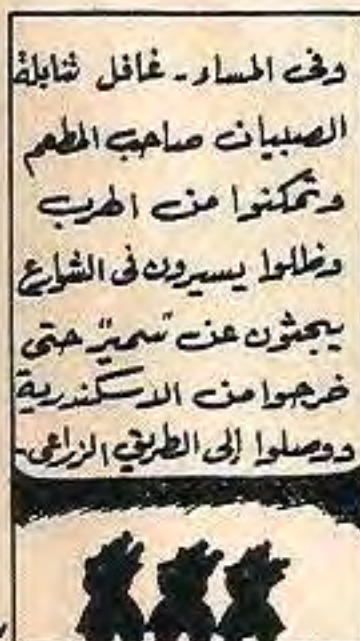 وفى المساء - غافل تنابلة
الصبيان صاحب المطعم
وتمكنوا من الهرب
وظلوا يسيرون فى الشوارع
يبحثون عن "سمير" حتى
خرجوا من الاسكندرية
ووصلوا إلى الطريق الزراعى -